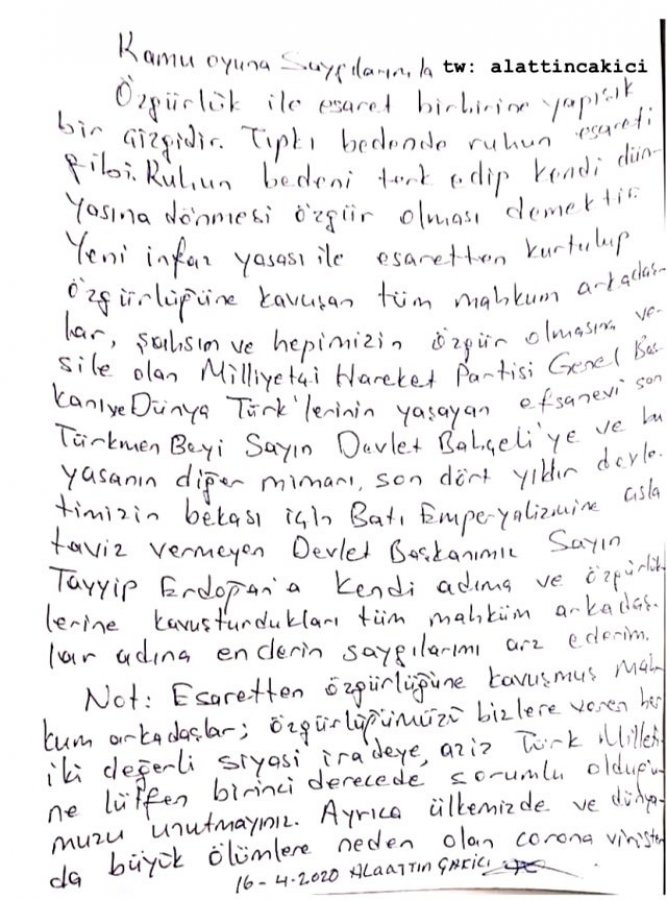 Kamu oyuna Saygılarımla tw: alattincakici
Özgürlük ile esaret birbirine yapışık
bir çizgidir. Tıpkı bedende ruhun esareti
gibi. Ruhun bedeni terk edip kendi dün-
yasına dönmesi özgür olması demektir.
Yeni infaz yasası ile esaretten kurtulup
özgürlüğüne kavuşan tüm mahkum arkadaş-
lar, şahsım ve hepimizin özgür olmasına ve-
sile olan Milliyetçi Hareket Partisi Genel Baş-
kanı ve Dünya Türk'lerinin yaşayan efsanevi son
Türkmen Beyi Sayın Devlet Bahçeli'ye ve bu
yasanın diğer mimarı, son dört yıldır devle-
timizin bekası için Batı Emperyalizmine asla
taviz vermeyen Devlet Başkanımız Sayın
Tayyip Erdoğan'a kendi adıma ve özgürlük-
lerine kavuşturdukları tüm mahküm arkadaş-
lar adına en derin saygılarımı arz ederim.
Not: Esaretten özgürlüğüne kavuşmuş mah-
kum arkadaşlar; özgürlüğümüzü bizlere veren her
iki değerli siyasi iradeye, aziz Türk Milleti-
ne lütfen birinci derecede sorumlu olduğu-
muzu unutmayınız. Ayrıca ülkemizde ve dünya-
da büyük ölümlere neden olan corona virüsten
16-4.2020 ALAATTİN ÇAKICI